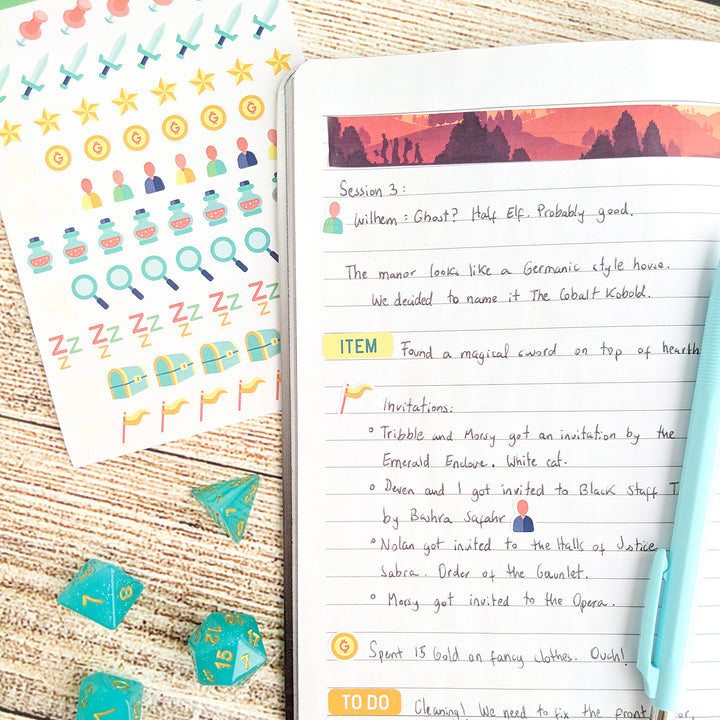 Session 3:
Wilhem = Ghost? Half Elf. Probably good.
The manor looks like a Germanic style house.
We decided to name it The Cobalt Kobold.
ITEM Found a magical sword on top of hearth
Invitations:
Tribble and Morsy got an invitation by the
Emerald Enclave. White cat.
Deven and I got invited to Black Staff T
by Bashra Safahr
Nolan got invited to the Halls of Justice
Sabra. Order of the Gaunlet.
Morsy got invited to the Opera.
Spent 15 Gold on fancy clothes. Ouch!
TO DO Cleaning! We need to fix the front
Z Z Z
Z Z Z
Z Z Z
Z Z Z
Z Z Z
Z Z Z
7
15
17